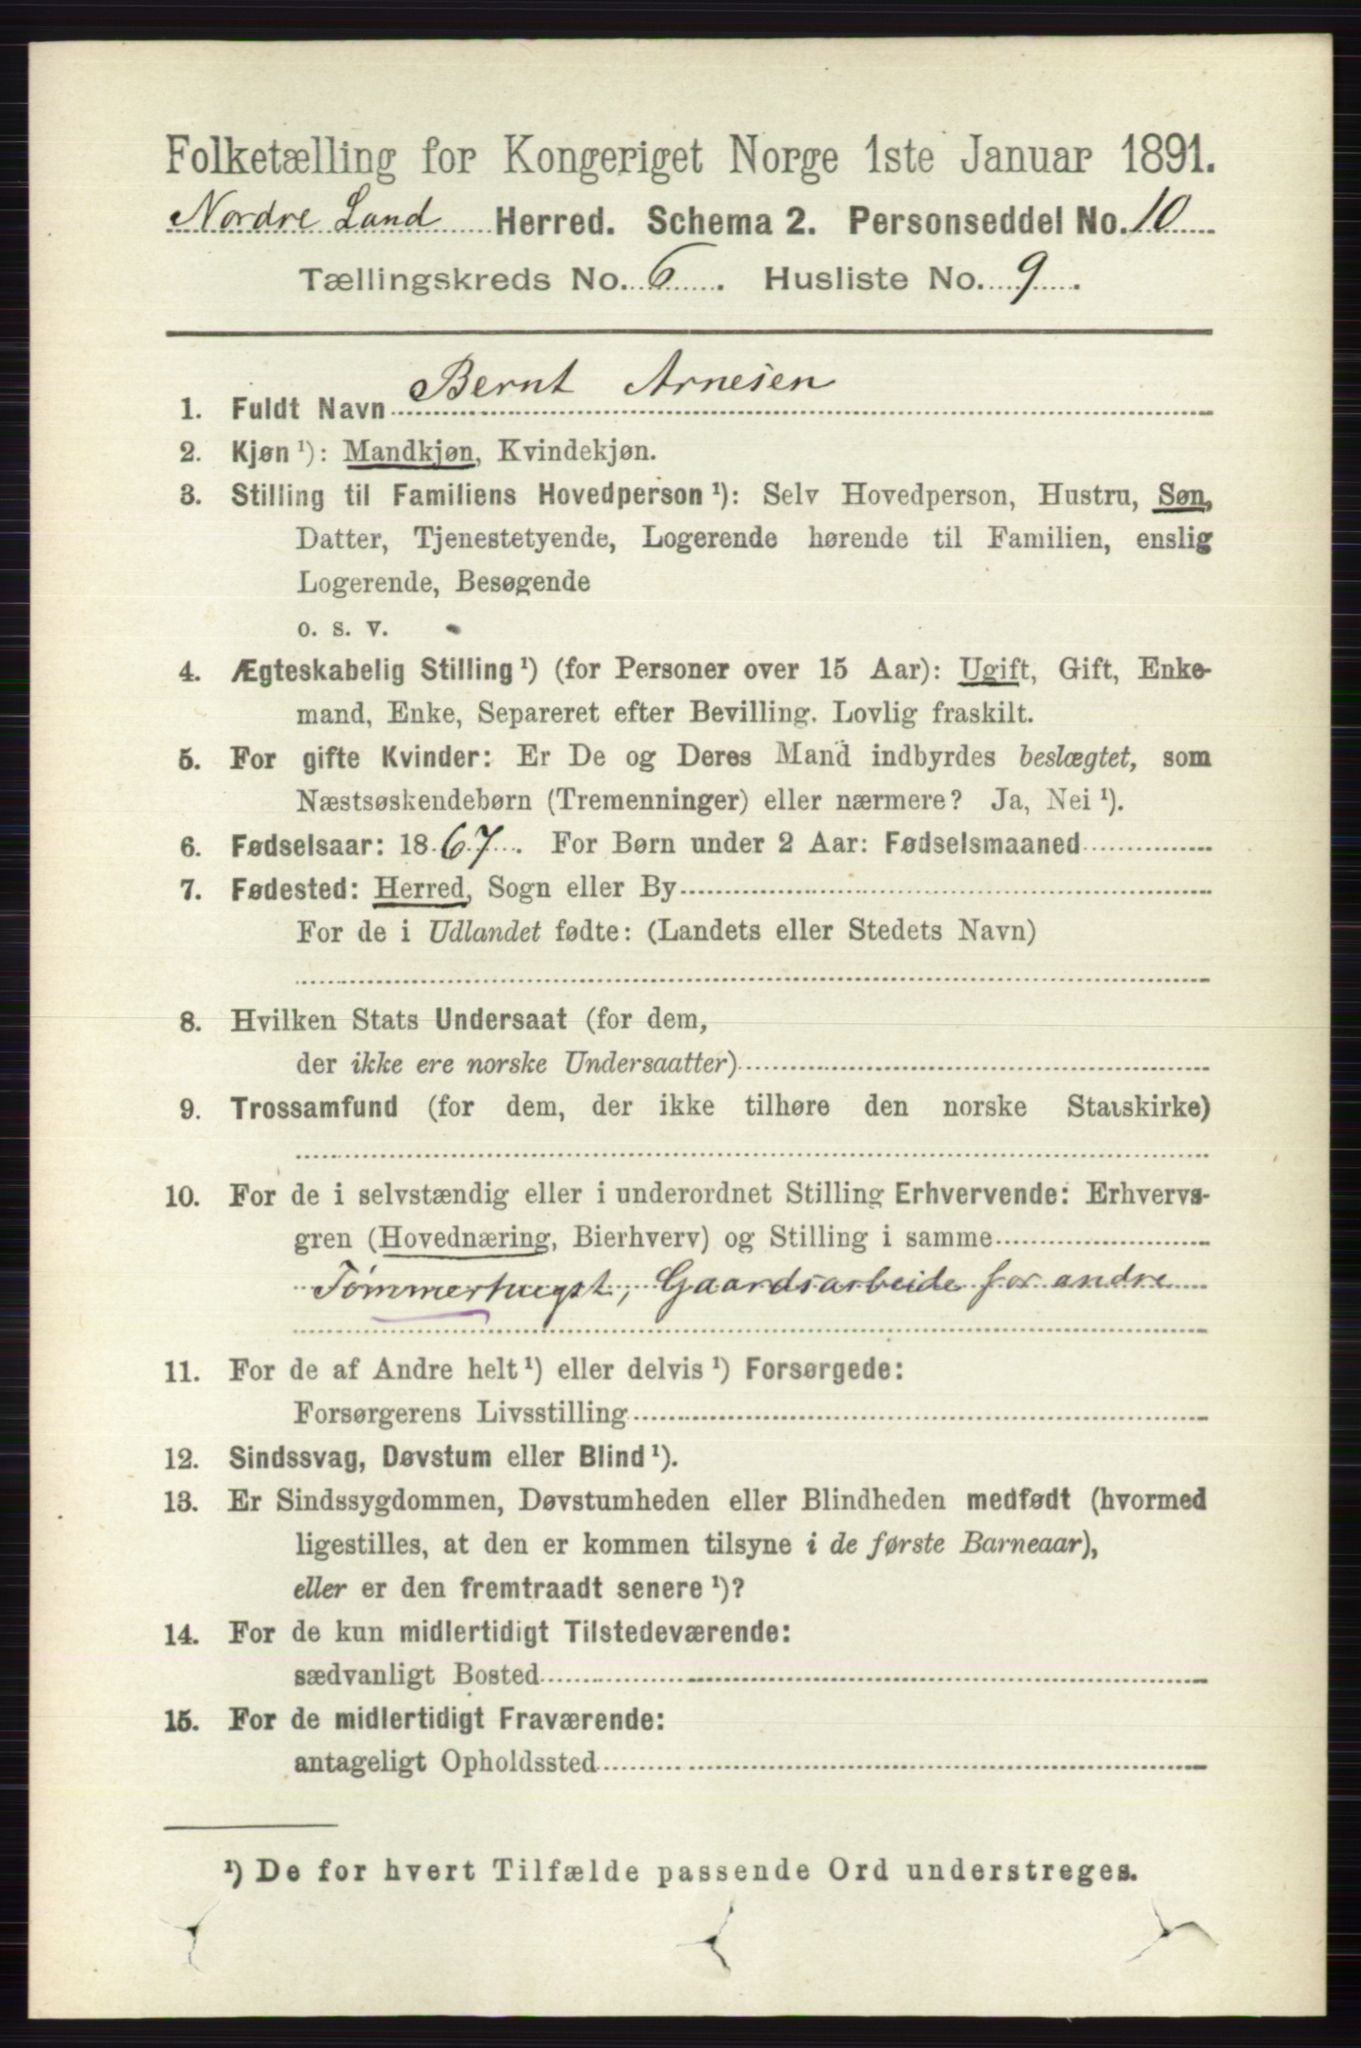 Folketælling for Kongeriget Norge 1ste Januar 1891.
Nordre Land Herred. Schema 2. Personseddel No. 10
Tællingskreds No. 6. Husliste No. 9.
1. Fuldt Navn Bernt Arnesen
2. Kjøn ¹): Mandkjøn, Kvindekjøn.
3. Stilling til Familiens Hovedperson ¹): Selv Hovedperson, Hustru, Søn,
Datter, Tjenestetyende, Logerende hørende til Familien, enslig
Logerende, Besøgende
o. s. v.
4. Ægteskabelig Stilling ¹) (for Personer over 15 Aar): Ugift, Gift, Enke-
mand, Enke, Separeret efter Bevilling. Lovlig fraskilt.
5. For gifte Kvinder: Er De og Deres Mand indbyrdes beslægtet, som
Næstsøskendebørn (Tremenninger) eller nærmere? Ja, Nei ¹).
6. Fødselsaar: 1867. For Børn under 2 Aar: Fødselsmaaned
7. Fødested: Herred, Sogn eller By
For de i Udlandet fødte: (Landets eller Stedets Navn)
8. Hvilken Stats Undersaat (for dem,
der ikke ere norske Undersaatter)
9. Trossamfund (for dem, der ikke tilhøre den norske Statskirke)
10. For de i selvstændig eller i underordnet Stilling Erhvervende: Erhvervs-
gren (Hovednæring, Bierhverv) og Stilling i samme
Tømmerhugst, Gaardsarbeide for andre
11. For de af Andre helt ¹) eller delvis ¹) Forsørgede:
Forsørgerens Livsstilling
12. Sindssvag, Døvstum eller Blind ¹).
13. Er Sindssygdommen, Døvstumheden eller Blindheden medfødt (hvormed
ligestilles, at den er kommen tilsyne i de første Barneaar),
eller er den fremtraadt senere ¹)?
14. For de kun midlertidigt Tilstedeværende:
sædvanligt Bosted
15. For de midlertidigt Fraværende:
antageligt Opholdssted
¹) De for hvert Tilfælde passende Ord understreges.